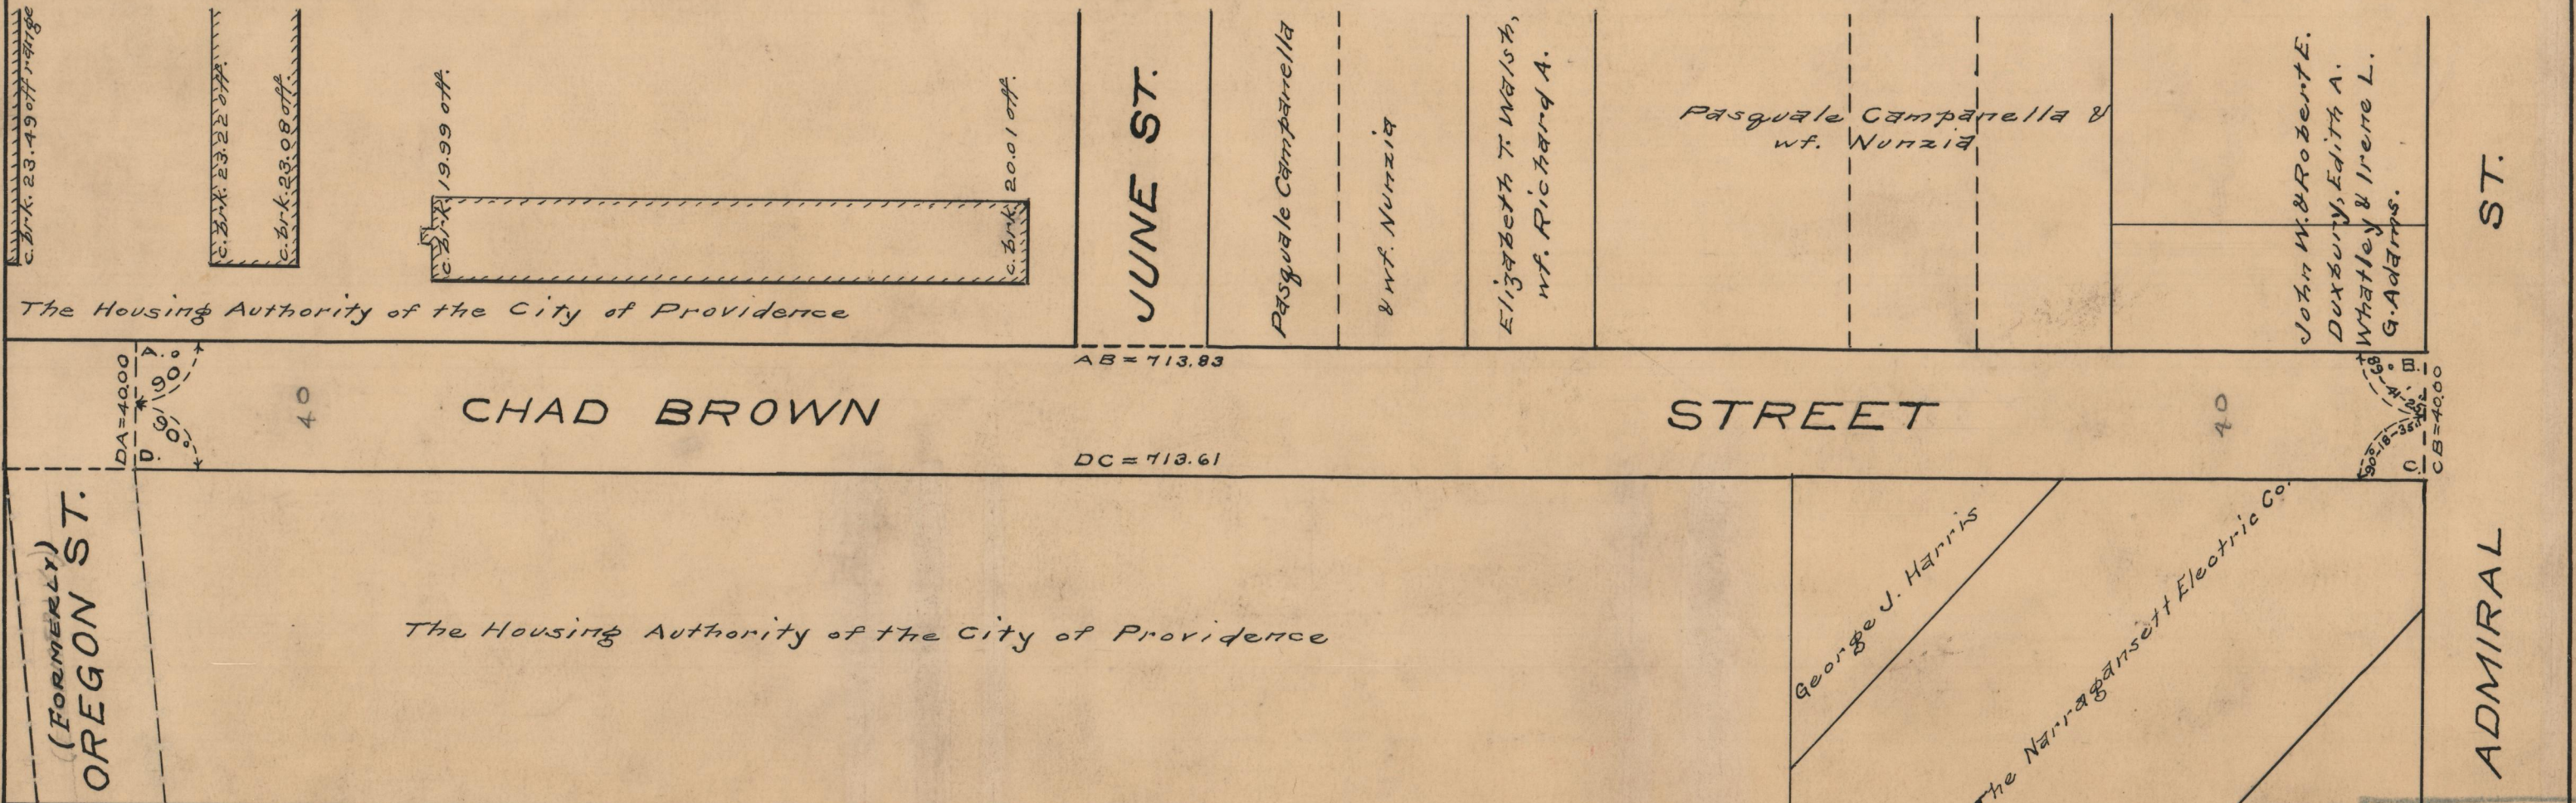 c.brk. 23.49 off range
c.brk. 23.22 off.
c.brk. 23.08 off.
c.brk. 19.99 off.
c.brk. 20.01 off.
The Housing Authority of the City of Providence
JUNE ST.
Pasquale Campanella
& wf. Nunzia
Elizabeth T. Walsh,
wf. Richard A.
Pasquale Campanella &
wf. Nunzia
John W. & Robert E.
Duxbury, Edith A.
Whatley & Irene L.
G. Adams.
AB = 713.83
DA=40.00
A.
90°
90°
D.
40
CHAD BROWN STREET
40
B.
C.
90°-18-35
CB=40.00
DC = 713.61
(FORMERLY)
OREGON ST.
The Housing Authority of the City of Providence
George J. Harris
The Narragansett Electric Co.
ADMIRAL ST.